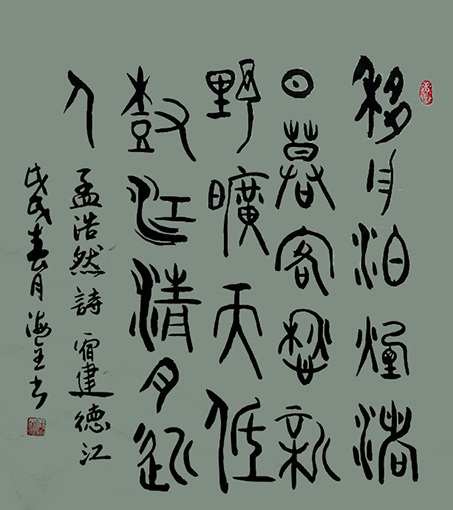 移舟泊煙渚
日暮客愁新
野曠天低
樹江清月近
人
孟浩然詩宿建德江
戊戌春月海书